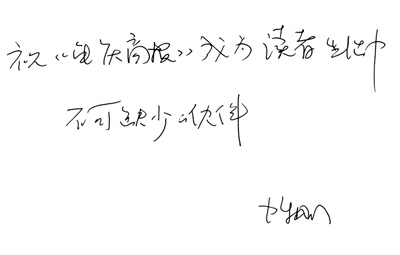 祝《重庆商报》成为读者生活中
不可缺少的伙伴